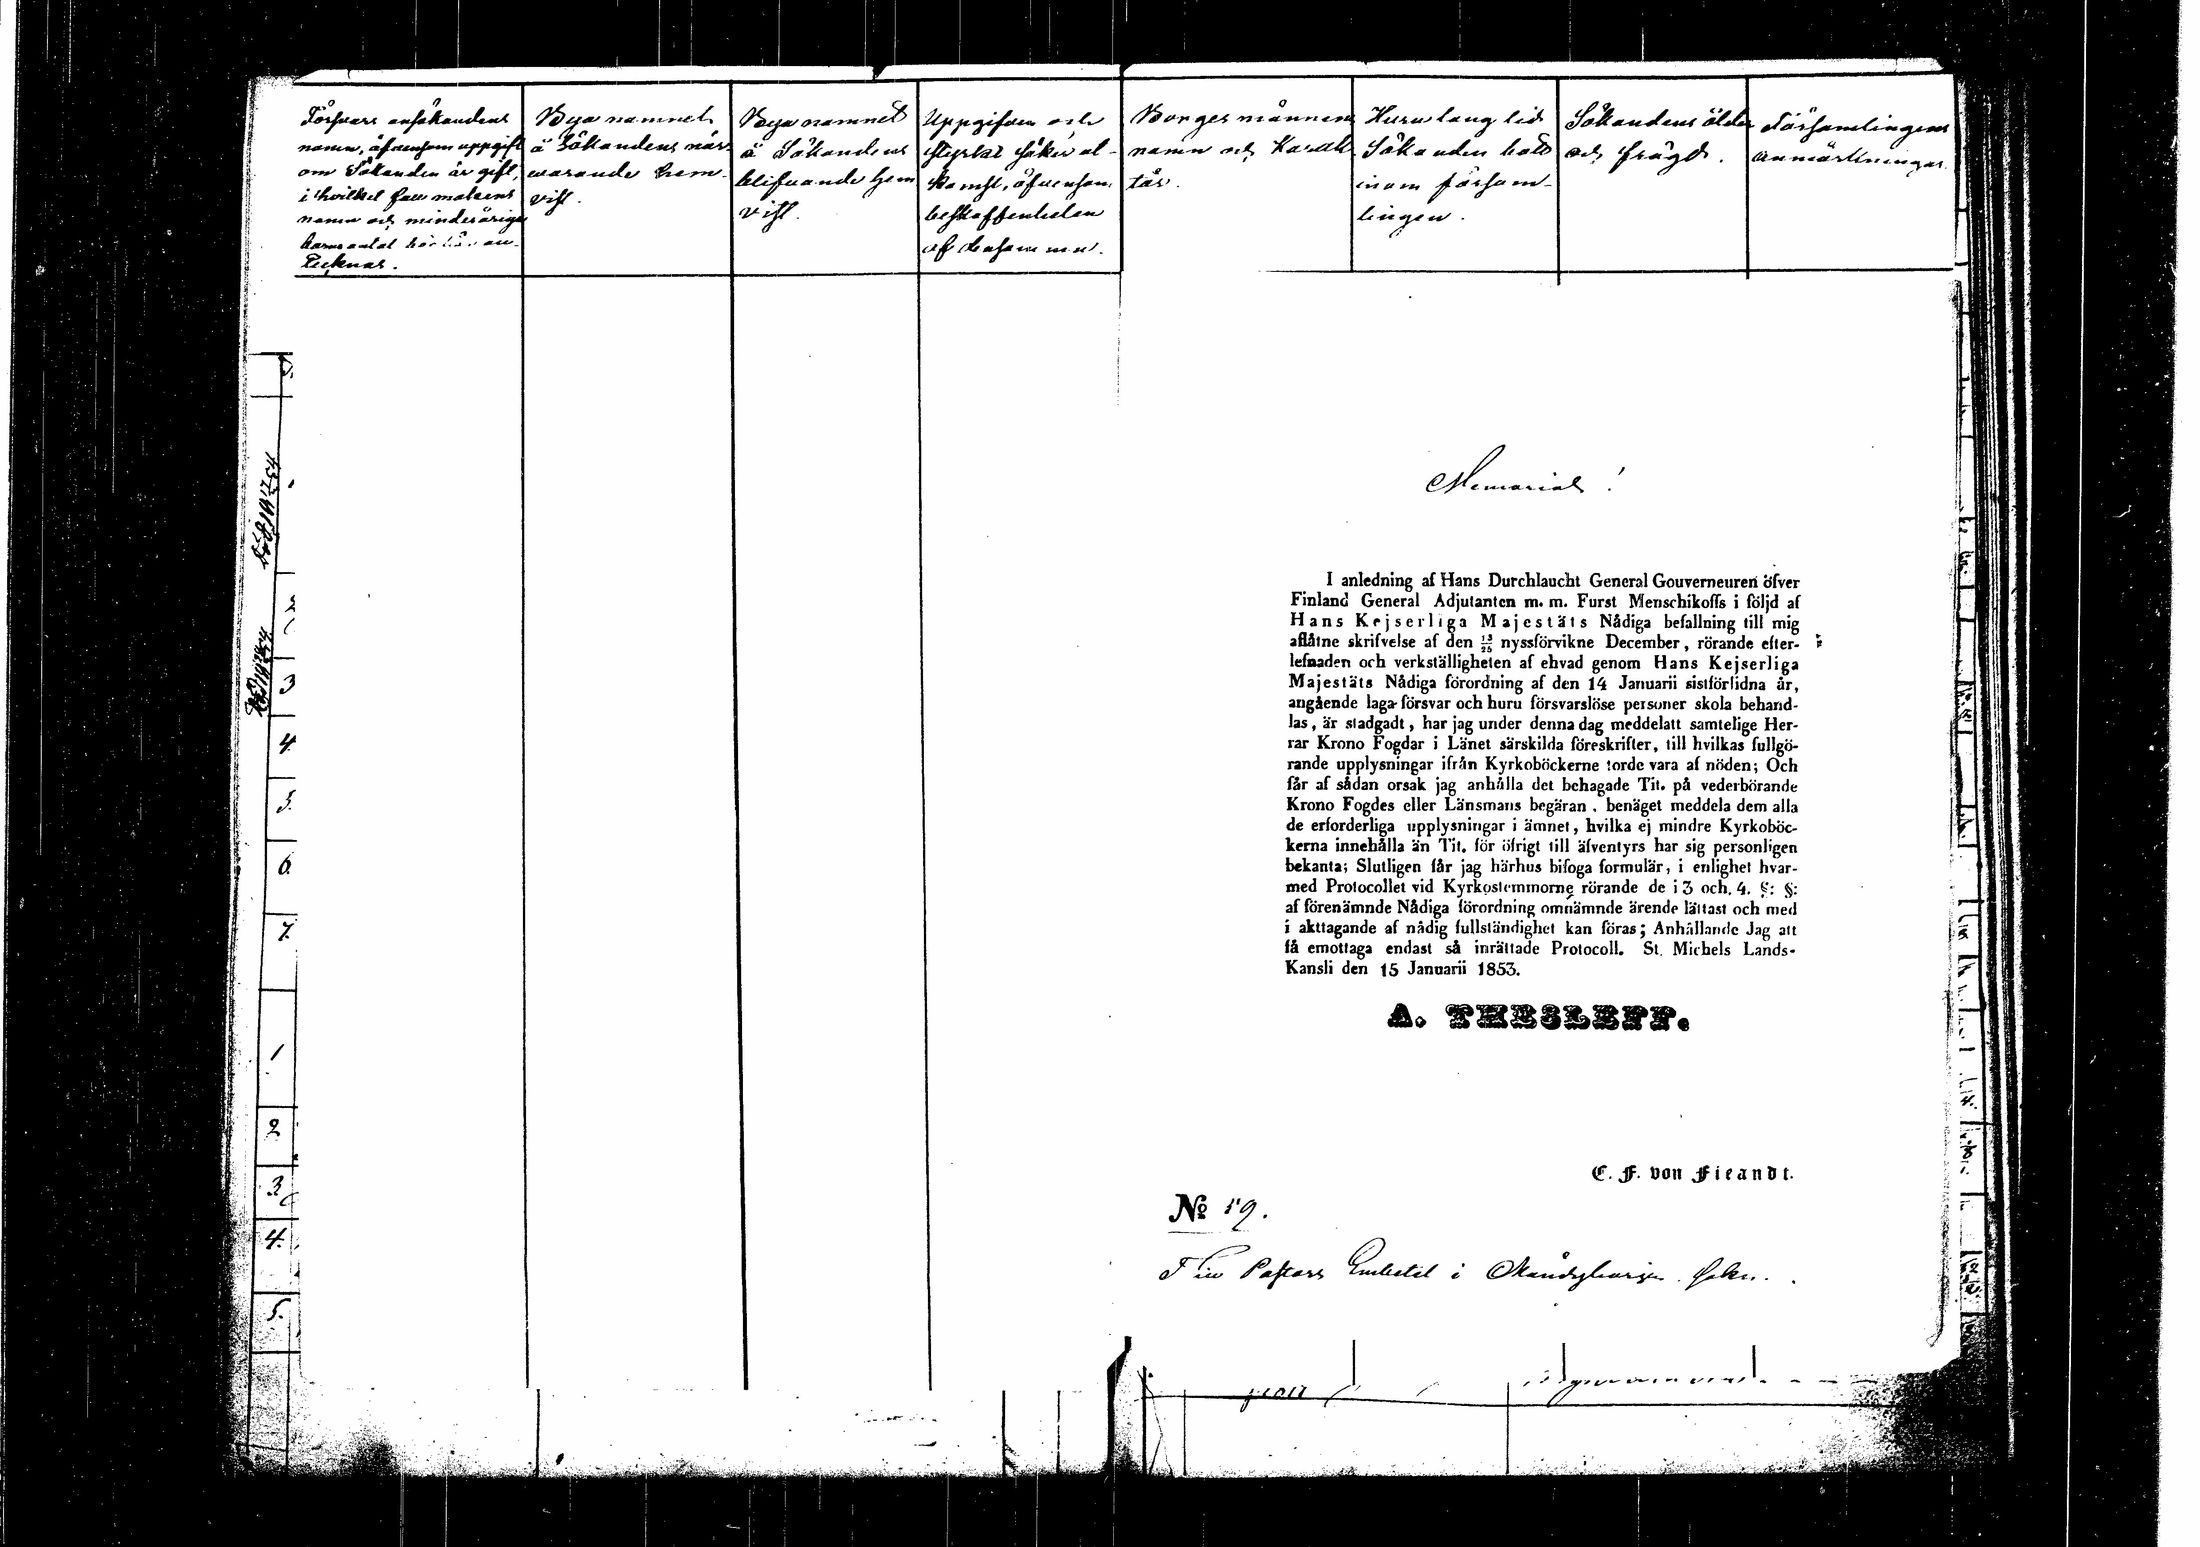 Försvars ansökandens
namn, äfvensom uppgift
om Sökanden är gift,
i hvilket fall makens
namn och minderåriga
barns antal bör här an-
tecknas.
Bya namnet
å Sökandens när-
warande hem-
vist.
Bya namnet
å Sökandens
blifvande hem
vist.
Uppgifven och
styrkt säker ut-
komst, äfvensom
beskaffenheten
af densamma.
Borgesmännens
namn och Karak-
tär.
Huru lång tid
Sökanden bott
inom försam-
lingen.
Sökandens ålder
och frägd.
Församlingens
anmärkningar.
3
4.
5.
6.
7.
1
2
3
4.
5.
Memorial!
I anledning af Hans Durchlaucht General Gouverneuren öfver
Finland General Adjutanten m. m. Furst Menschikoffs i följd af
Hans Kejserliga Majestäts Nådiga befallning till mig
aflåtne skrifvelse af den 13/25 nyssförvikne December, rörande efter-
lefnaden och verkställigheten af ehvad genom Hans Kejserliga
Majestäts Nådiga förordning af den 14 Januarii sistförlidna år,
angående laga försvar och huru försvarslöse personer skola behand-
las, är stadgadt, har jag under denna dag meddelatt samtelige Her-
rar Krono Fogdar i Länet särskilda föreskrifter, till hvilkas fullgö-
rande upplysningar ifrån Kyrkoböckerne torde vara af nöden; Och
får af sådan orsak jag anhålla det behagade Tit. på vederbörande
Krono Fogdes eller Länsmans begäran, benäget meddela dem alla
de erforderliga upplysningar i ämnet, hvilka ej mindre Kyrkoböc-
kerna innehålla än Tit. för öfrigt till äfventyrs har sig personligen
bekanta; Slutligen får jag härhus bifoga formulär, i enlighet hvar-
med Protocollet vid Kyrkostemmorne rörande de i 3 och. 4. §: §:
af förenämnde Nådiga förordning omnämnde ärende lättast och med
i akttagande af nådig fullständighet kan föras; Anhållande Jag att
få emottaga endast så inrättade Protocoll. St. Michels Lands-
Kansli den 15 Januarii 1853.
A. THESLEFF.
C. F. von Fieandt.
No 59.
Till Pastors Embetet i Mändyharju Sokn.